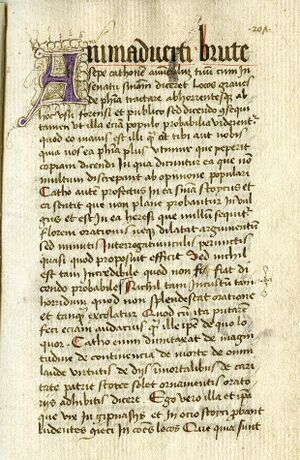 20A
Animadverti brute
sepe cathonē avunculū tuū cum in
senatu sniam diceret locos graves
ex phīa tractare abhorrentesqȝ ab
hoc usu forensi et publico sed dicendo
tamen ut illa etiā populo probabilia viderent
quod eo maius est illi qȝ aut tibi aut nobis
quia nos ea phīa plus utimur que peperit
copiam dicendi in qua dicuntur ea que nō
multum discrepant ab opinione populari
Catho autē perfectus in ea snīa stoycus et
ea sentit que non plane probantur in vul
gus et est in ea heresi que nullum sequit
florem orationis neqȝ dilatat argumentū
sed minutis interrogatiunculis
quasi quod proposuit efficit Sed nichil
est tam incredibile quod non fiat di
cendo probabile Nichil tam incultum tam
horridum quod non splendescat oratione
et tanqȝ excolatur Quod cū ita putarem
feci etiam audacius qȝ ille ipse de quo lo
quor Catho enim dumtaxat de magni
tudine de continencia de morte de omi
laude virtutis de diis immortalibus de cari
tate patrie stoyce solet ornamentis orato
riis adhibitis dicere Ego vero illa et ipsa
que vix in gipnasiis et in ocio stoyci pbant
ludentes conieci in coēs locos Que quia sunt